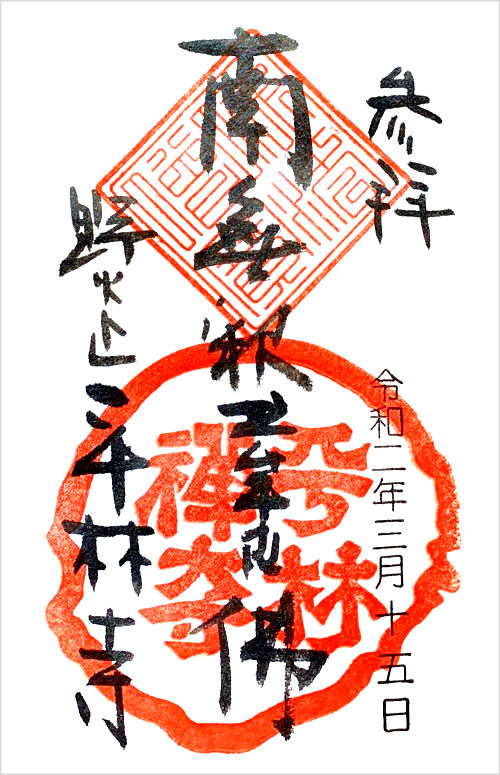 參拝
令和二年三月十五日
南無釈迦牟尼佛
野火止平林寺
平林
禪寺